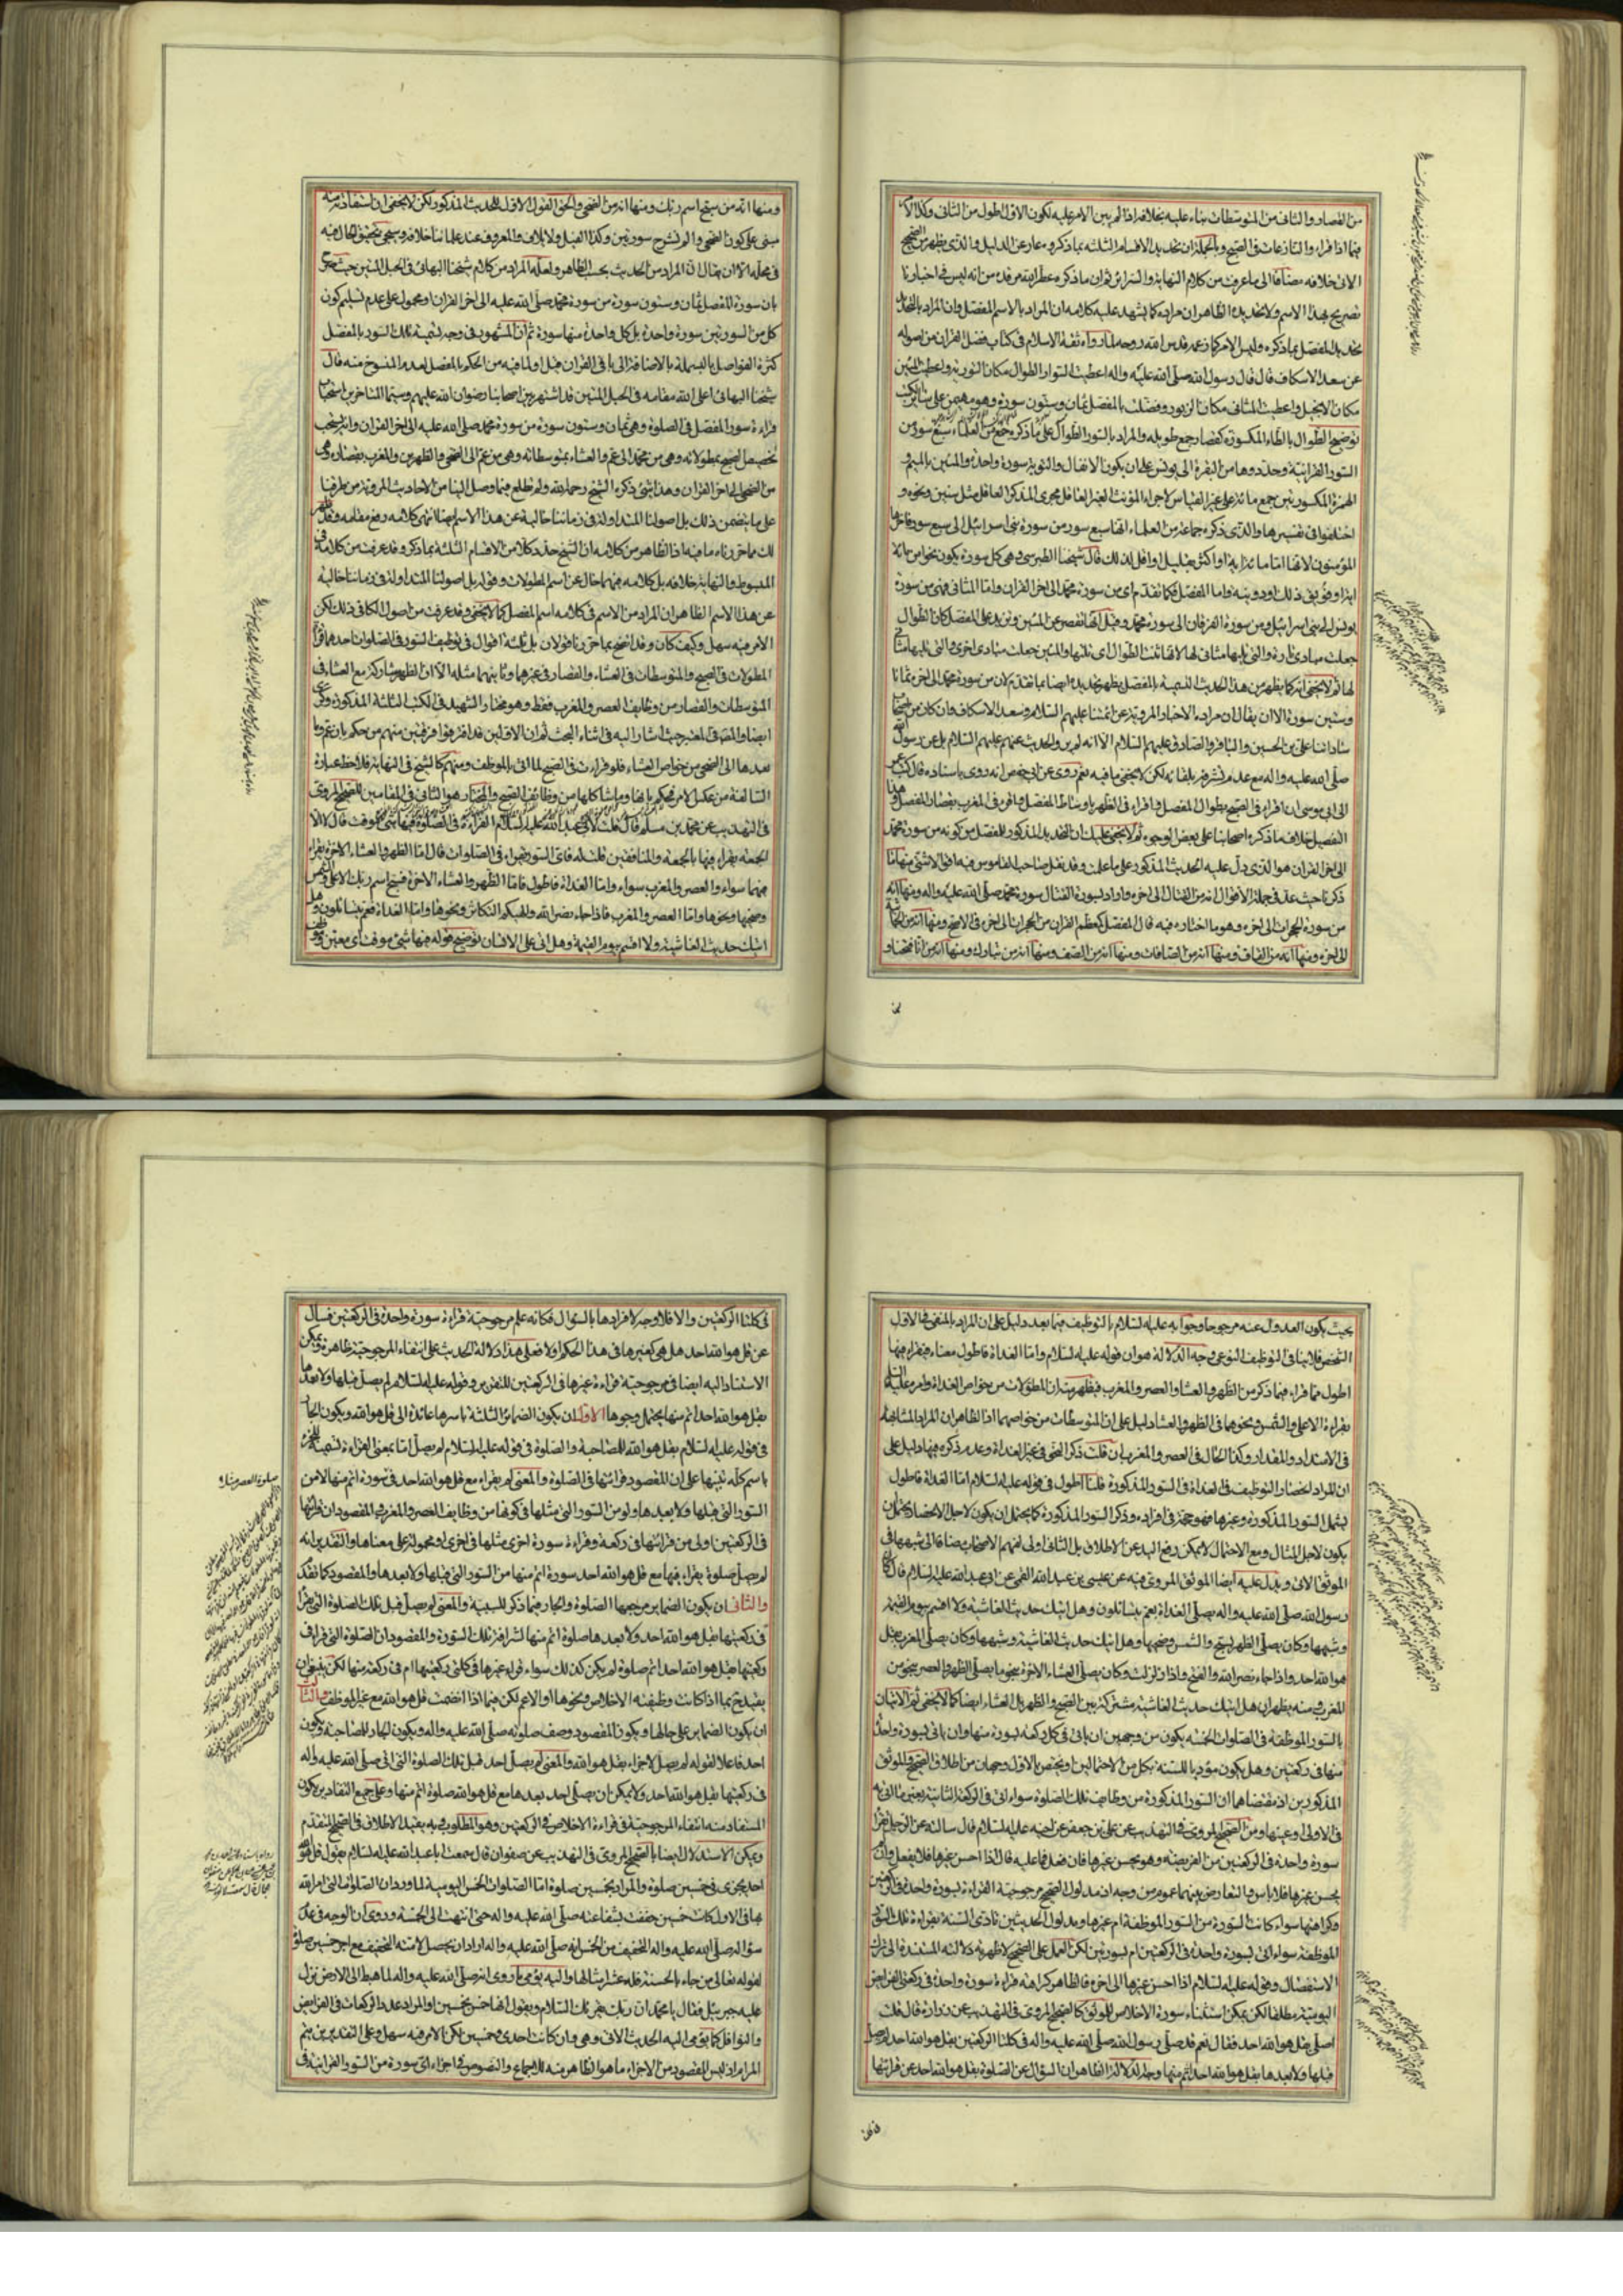 من القصار والثاني من المتوسطات بناء عليه بخلافه اذا لم يبين الامر عليه لكون الاول اطول من الثاني وكذا
فيما اذا قراء والنازعات في الصبح وبالجملة ان تحديد الاقسام الثلثة بما ذكروه عار عن الدليل والذي يظهر من الصحيح
الاتي خلافه مضافا الى ما عرفت من كلام النهاية والسرائر ثم ان ما ذكره عطر الله مرقده من انه ليس في اخبارنا
تصريح بهذا الاسم ولا تحديده الظاهر ان مراده كما يشهد عليه كلامه ان المراد بالاسم المفصل وان المراد بالتحديد
تحديد المفصل بما ذكره وليس الامر كما زعمه قدس الله روحه لما رواه ثقة الاسلام في كتاب فضل القران من اصوله
عن سعد الاسكاف قال قال رسول الله صلى الله عليه واله اعطيت السور الطوال مكان التورية واعطيت المئين
مكان الانجيل واعطيت المثاني مكان الزبور وفضلت بالمفصل ثمان وستون سورة وهو مهيمن على سائر الكتب
توضيح الطوال بالطاء المكسورة كقصار جمع طويله والمراد بالسور الطوال على ما ذكره جمع من العلماء سبع سور من
السور القرانية وحددوها من البقرة الى يونس على ان يكون الانفال والتوبة سورة واحدة والمئين بالميم و
الهمزة المكسورتين جمع مائة على غير القياس لاجراء المؤنث الغير العاقل مجرى المذكر العاقل مثل سنين ونحوه و
اختلفوا في تفسيرها والذي ذكره جماعة من العلماء انها سبع سور من سورة بني اسرائيل الى سبع سور فاخرها
المؤمنون لانها اما مائة اية او اكثر بقليل او اقل لذلك قال شيخنا الطبرسي وهي كل سورة يكون نحوا من مائة
اية او فويق ذلك او دوينه واما المفصل فكما تقدم اي من سورة محمد الى اخر القران واما المثاني فهي من سورة
يونس الى بني اسرائيل ومن سورة الفرقان الى سورة محمد وقيل انها تقصر عن المئين وتزيد على المفصل كان الطوال
جعلت مبادي تارة والتي تليها مثاني لها لانها ثنت الطوال اي تلتها والمئين جعلت مبادي اخرى والتي تليها مثاني
لها ثم لا يخفى انه كما يظهر من هذا الحديث التسمية بالمفصل يظهر تحديده ايضا بما تقدم لان من سورة محمد الى اخره ثمانا
وستين سورة الا ان يقال ان مراده الاخبار المروية عن ائمتنا عليهم السلام وسعد الاسكاف وان كان من
ساداتنا علي بن الحسين والباقر والصادق عليهم السلام الا انه لم يرو الحديث عنهم عليهم السلام بل عن رسول الله
صلى الله عليه واله مع عدم تشرفه بلقائه لكن لا يخفى ما فيه نعم روى عن ابي حفص انه روى باسناده قال كتب عمر
الى ابي موسى ان اقراء في الصبح بطوال المفصل واقراء في الظهر باوساط المفصل واقرء في المغرب بقصار المفصل وهذا
التفصيل خلاف ما ذكره اصحابنا على بعض الوجوه ثم لا يخفى عليك ان التحديد المذكور للمفصل من كونه من سورة محمد
الى اخر القران هو الذي دل عليه الحديث المذكور على ما علمت وقد نقل صاحب القاموس فيه اقوالا شتى منها ما
ذكرنا حيث عد في جملة الاقوال انه من القتال الى اخره واراد بسورة القتال سورة محمد صلى الله عليه واله ومنها انه
من سورة الحجرات الى اخره وهو ما اختاره فيه قال المفصل كمعظم القران من الحجرات الى اخره في الاصح ومنها انه من الجاثية
الى اخره ومنها انه من القاف ومنها انه من الصافات ومنها انه من الصف ومنها انه من تبارك ومنها انه من انا فتحنا و
ومنها انه من سبح اسم ربك ومنها انه من الضحى والحق القول الاول للحديث المذكور لكن لا يخفى ان استفادته منه
مبنى على كون الضحى والم نشرح سورتين وكذا الفيل ولايلاف والمعروف عند علمائنا خلافه وسيجئ تحقيق الحال فيه
في محله الا ان يقال ان المراد من الحديث بحسب الظاهر ولعله المراد من كلام شيخنا البهائي في الحبل المتين حيث صرح
بان سورة المفصل ثمان وستون سورة من سورة محمد صلى الله عليه الى اخر القران او محمول على عدم تسليم كون
كل من السورتين سورة واحدة بل كل واحدة منها سورة ثم ان المشهور في وجه تسمية تلك السور بالمفصل
كثرة الفواصل بالبسملة بالاضافة الى باقي القران وقيل اولما فيه من الحكم بالمفصل لعدم المنسوخ منه قال
شيخنا البهائي اعلى الله مقامه في الحبل المتين قد اشتهر بين اصحابنا رضوان الله عليهم وسيما المتاخرين استحباب
قراءة سور المفصل في الصلوة وهي ثمان وستون سورة من سورة محمد صلى الله عليه الى اخر القران وانه يستحب
تخصيص الصبح بمطولاته وهي من محمد الى عم والعشاء بمتوسطاته وهي من عم الى الضحى والظهرين والمغرب بقصاره وهي
من الضحى الى اخر القران وهذا شئ ذكره الشيخ رحمه الله ولم نطلع فيما وصل الينا من الاحاديث المروية من طرقنا
على ما يتضمن ذلك بل اصولنا المتداولة في زماننا خالية عن هذا الاسم ايضا انتهى كلامه رفع مقامه وقد ظهر
لك مما حررناه ما فيه اذ الظاهر من كلامه ان الشيخ حدد كلا من الاقسام الثلثة بما ذكر وقد عرفت من كلامه في
المبسوط والنهاية خلافه بل كلامه فيهما خال عن اسم المطولات وقوله بل اصولنا المتداولة في زماننا خالية
عن هذا الاسم الظاهر ان المراد من الاسم في كلامه اسم المفصل كما لا يخفى وقد عرفت من اصول الكافي ذلك لكن
الامر فيه سهل وكيف كان وقد اتضح مما حررنا قولان بل ثلثة اقوال في توظيف السور في الصلوات احدها قراءة
المطولات في الصبح والمتوسطات في العشاء والقصار في غيرهما وثانيهما مثله الا ان الظهر مشاركة مع العشاء في
المتوسطات والقصار من وظايف العصر والمغرب فقط وهو مختار الشهيد في الكتب الثلثة المذكورة
ايضا والمحقق في المعتبر حيث اشار اليه في اثناء البحث ثم ان الاولين قد افترقوا فرقتين منهم من حكم بان عم وما
بعدها الى الضحى من خواص العشاء فلو قراءت في الصبح لما اتى بالموظف ومنهم كالشيخ في النهاية فلاحظ عبارته
السالفة من عكس الامر فحكم بانها وما شاكلها من وظائف الصبح والمختار هو الثاني في المقامين للصحيح المروي
في التهذيب عن محمد بن مسلم قال قلت لابي عبد الله عليه السلام القراءة في الصلوة فيها شئ موقت قال لا الا
الجمعة يقراء فيها بالجمعة والمنافقين قلت له فاي السور تقراء في الصلوات قال اما الظهر والعشاء الاخرة يقراء
فيهما سواء والعصر والمغرب سواء واما الغداة فاطول فاما الظهر والعشاء الاخرة فسبح اسم ربك الاعلى والشمس
وضحيها ونحوها واما العصر والمغرب فاذا جاء نصر الله والهيكم التكاثر ونحوها واما الغداة فعم يتسائلون وهل
اتيك حديث الغاشية ولا اقسم بيوم القيمة وهل اتى على الانسان توضيح قوله فيها شئ موقت اي معين
بحيث يكون العدول عنه مرجوحا وجوابه عليه السلام بالتوظيف فيما بعد دليل على ان المراد بالمنفي في الاول
الشخص فلا ينافي التوظيف النوعي وجه الدلالة هو ان قوله عليه السلام واما الغداة فاطول معناه فيقراء فيها
اطول مما قراء فيما ذكر من الظهر والعشاء والعصر والمغرب فيظهر منه ان المطولات من خواص الغداة وامره عليه السلام
بقراءة الاعلى والشمس ونحوهما في الظهر والعشاء دليل على ان المتوسطات من خواصهما اذ الظاهر ان المراد المشابهة
في الامتداد والمقدار وكذا الحال في العصر والمغرب ان قلت ذكر النحو في غير الغداة وعدم ذكره فيها دليل على
ان المراد انحصار التوظيف في الغداة في السور المذكورة قلنا اطول في قوله عليه السلام اما الغداة فاطول
يشمل السور المذكورة وغيرها فهو حجة في افراده وذكر السور المذكورة كما يحتمل ان يكون لاجل الانحصار يحتمل ان
يكون لاجل المثال ومع الاحتمال لا يمكن رفع اليد عن الاطلاق بل الثاني اولى لفهم الاصحاب مضافا الى شبهها في
الموثق الاتي ويدل عليه ايضا الموثق المروي فيه عن عيسى بن عبد الله القمي عن ابي عبد الله عليه السلام قال كان
رسول الله صلى الله عليه واله يصلي الغداة بعم يتسائلون وهل اتيك حديث الغاشية ولا اقسم بيوم القيمة
وشبهها وكان يصلي الظهر بسبح والشمس وضحيها وهل اتيك حديث الغاشية وشبهها وكان يصلي المغرب بقل
هو الله احد واذا جاء نصر الله والفتح واذا زلزلت وكان يصلي العشاء الاخرة بنحو ما يصلي الظهر والعصر بنحو من
المغرب ومنه يظهر ان هل اتيك حديث الغاشية مشتركة بين الصبح والظهر بل العشاء ايضا كما لا يخفى ثم الاتيان
بالسور الموظفة في الصلوات الخمسة يكون من وجهين ان ياتي في كل ركعة بسورة منها وان ياتي بسورة واحدة
منها في ركعتين وهل يكون مؤديا للسنة بكل من الاحتمالين او يختص بالاول وجهان من اطلاق الصحيح والموثق
المذكورين اذ مقتضاهما ان السور المذكورة من وظايف تلك الصلوة سواء اتى في الركعة الثانية بعين ما اتى به
في الاولى او غيرها ومن الصحيح المروي في التهذيب عن علي بن جعفر عن اخيه عليه السلام قال سالته عن الرجل يقراء
سورة واحدة في الركعتين من الفريضة وهو يحسن غيرها فان فعل فما عليه قال اذا احسن غيرها فلا يفعل وان لم
يحسن غيرها فلا باس والتعارض بينهما عموم من وجه اذ مدلول الصحيح مرجوحية القراءة بسورة واحدة في الركعتين
وكراهتها سواء كانت السورة من السور الموظفة ام غيرها ومدلول الحديثين تادي السنة بقراءة تلك السور
الموظفة سواء اتى بسورة واحدة في الركعتين ام بسورتين لكن العمل على الصحيح لاظهرية دلالته المستندة الى ترك
الاستفصال وقوله عليه السلام اذا احسن غيرها الى اخره فالظاهر كراهة قراءة سورة واحدة في ركعتي الفرايض
اليومية مطلقا لكن يمكن استثناء سورة الاخلاص للموثق كالصحيح المروي في التهذيب عن زرارة قال قلت
اصلي بقل هو الله احد فقال نعم قد صلى رسول الله صلى الله عليه واله في كلتا الركعتين بقل هو الله احد لم يصل
قبلها ولا بعدها بقل هو الله احد اتم منها وجه الدلالة الظاهر ان السؤال عن الصلوة بقل هو الله احد عن قرائتها
في كلتا الركعتين والا فلا وجه لافرادها بالسؤال فكانه علم مرجوحية قراءة سورة واحدة في الركعتين فسال
عن قل هو الله احد هل هي كغيرها في هذا الحكم اولا فعلى هذا دلالة الحديث على انتفاء المرجوحية ظاهرة ويمكن
الاستناد اليه ايضا في مرجوحية قراءة غيرها في الركعتين للتقرير وقوله عليه السلام لم يصل قبلها ولا بعدها
بقل هو الله احد اتم منها يحتمل وجوها الاول ان يكون الضمائر الثلثة باسرها عائدة الى قل هو الله ويكون الجار
في قوله عليه السلام بقل هو الله للمصاحبة والصلوة في قوله عليه السلام لم يصل اما بمعنى القراءة تسمية للجزء
باسم كله تنبيها على ان المقصود قرائتها في الصلوة والمعنى لم يقراء مع قل هو الله احد في سورة اتم منها لا من
السور التي قبلها ولا بعدها ولو من السور التي مثلها في كونها من وظايف العصر والمغرب والمقصود ان قرائتها
في الركعتين اولى من قرائتها في ركعة وقراءة سورة اخرى مثلها في اخرى او محمولة على معناها والتقدير انه
لم يصل صلوة يقراء فيها مع قل هو الله احد سورة اتم منها من السور التي قبلها ولا بعدها والمقصود كما تقدم
والثاني ان يكون الضماير مرجعها الصلوة والجار فيما ذكر للسببية والمعنى لم يصل قبل تلك الصلوة التي قراء
في ركعتيها بقل هو الله احد ولا بعدها صلوة اتم منها لشرافة تلك السورة والمقصود ان الصلوة التي قراء في
ركعتيها بقل هو الله احد اتم صلوة لم يكن كذلك سواء قراء غيرها في كلتي ركعتيها ام في ركعة منها لكن ينبغي ان
يقيد بما اذا كانت وظيفته الاخلاص ونحوها او الاعم لكن فيما اذا انضمت قل هو الله مع غير الموظف والثالث
ان يكون الضماير على حالها ويكون المقصود وصف صلوته صلى الله عليه واله ويكون الجار للمصاحبة ويكون
احد فاعلا لقوله لم يصل لا جزاء بقل هو الله والمعنى لم يصل احد قبل تلك الصلوة التي اتى صلى الله عليه واله
في ركعتيها بقل هو الله احد ولا يمكن ان يصلي احد بعدها مع قل هو الله صلوة اتم منها وعلى جميع التقادير يكون
المستفاد منه انتفاء المرجوحية في قراءة الاخلاص في الركعتين وهو المطلوب وبه يقيد الاطلاق في الصحيح المتقدم
ويمكن الاستدلال ايضا بالصحيح المروي في التهذيب عن صفوان قال سمعت ابا عبد الله عليه السلام يقول قل هو الله
احد يجزي في خمسين صلوة والمراد بخمسين صلوة اما الصلوات الخمس اليومية لما ورد ان الصلوات التي امر الله
بها في الاول كانت خمسين خففت بشفاعته صلى الله عليه واله حتى انتهت الى الخمسة وروى ان الوجه في عدم
سؤاله صلى الله عليه واله التخفيف من الخمس انه صلى الله عليه واله اراد ان يحصل لامته التخفيف مع اجر خمسين صلوة
لقوله تعالى من جاء بالحسنة فله عشر امثالها واليه يومي ما روى انه صلى الله عليه واله لما هبط الى الارض نزل
عليه جبرئيل فقال يا محمد ان ربك يقرئك السلام ويقول انها خمس بخمسين او المراد عدد الركعات في الفرايض
والنوافل كما يومي اليه الحديث الاتي وهي وان كانت احدى وخمسين لكن الامر فيه سهل وعلى التقديرين يتم
المرام اذ ليس المقصود من الاجزاء ما هو الظاهر منه للاجماع والنصوص في اجزاء اي سورة من السور القرانية في